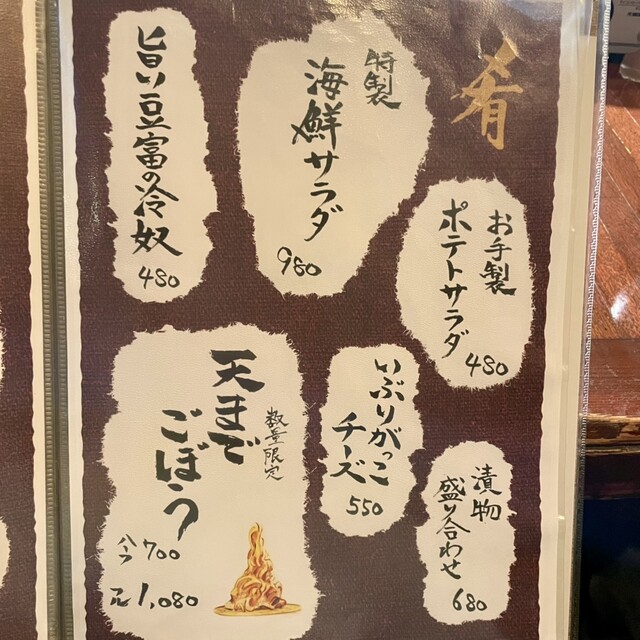 肴
特製
海鮮サラダ
980
旨い豆富の冷奴
480
お手製
ポテトサラダ
480
いぶりがっこ
チーズ
550
漬物
盛り合わせ
680
数量限定
天まで
ごぼう
ハーフ 700
フル 1,080